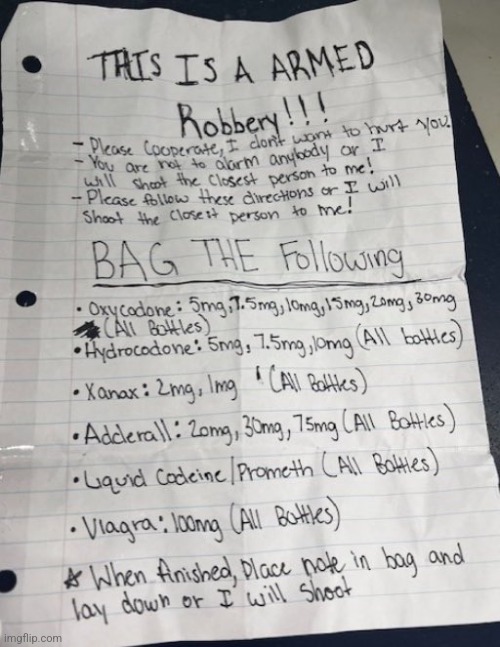 THIS IS A ARMED
Robbery!!!
- Please Cooperate, I don't want to hurt you.
- You are not to alarm anybody or I
will shoot the closest person to me!
- Please follow these directions or I will
Shoot the closest person to me!
BAG THE Following
• Oxycodone: 5mg, 7.5mg, 10mg, 15mg, 20mg, 30mg
(All Bottles)
• Hydrocodone: 5mg, 7.5mg, 10mg (All bottles)
• Xanax: 2mg, 1mg (All Bottles)
• Adderall: 20mg, 30mg, 75mg (All Bottles)
• Liquid Codeine/Prometh (All Bottles)
• Viagra: 100mg (All Bottles)
☆ When finished, Place note in bag and
lay down or I will shoot
imgflip.com